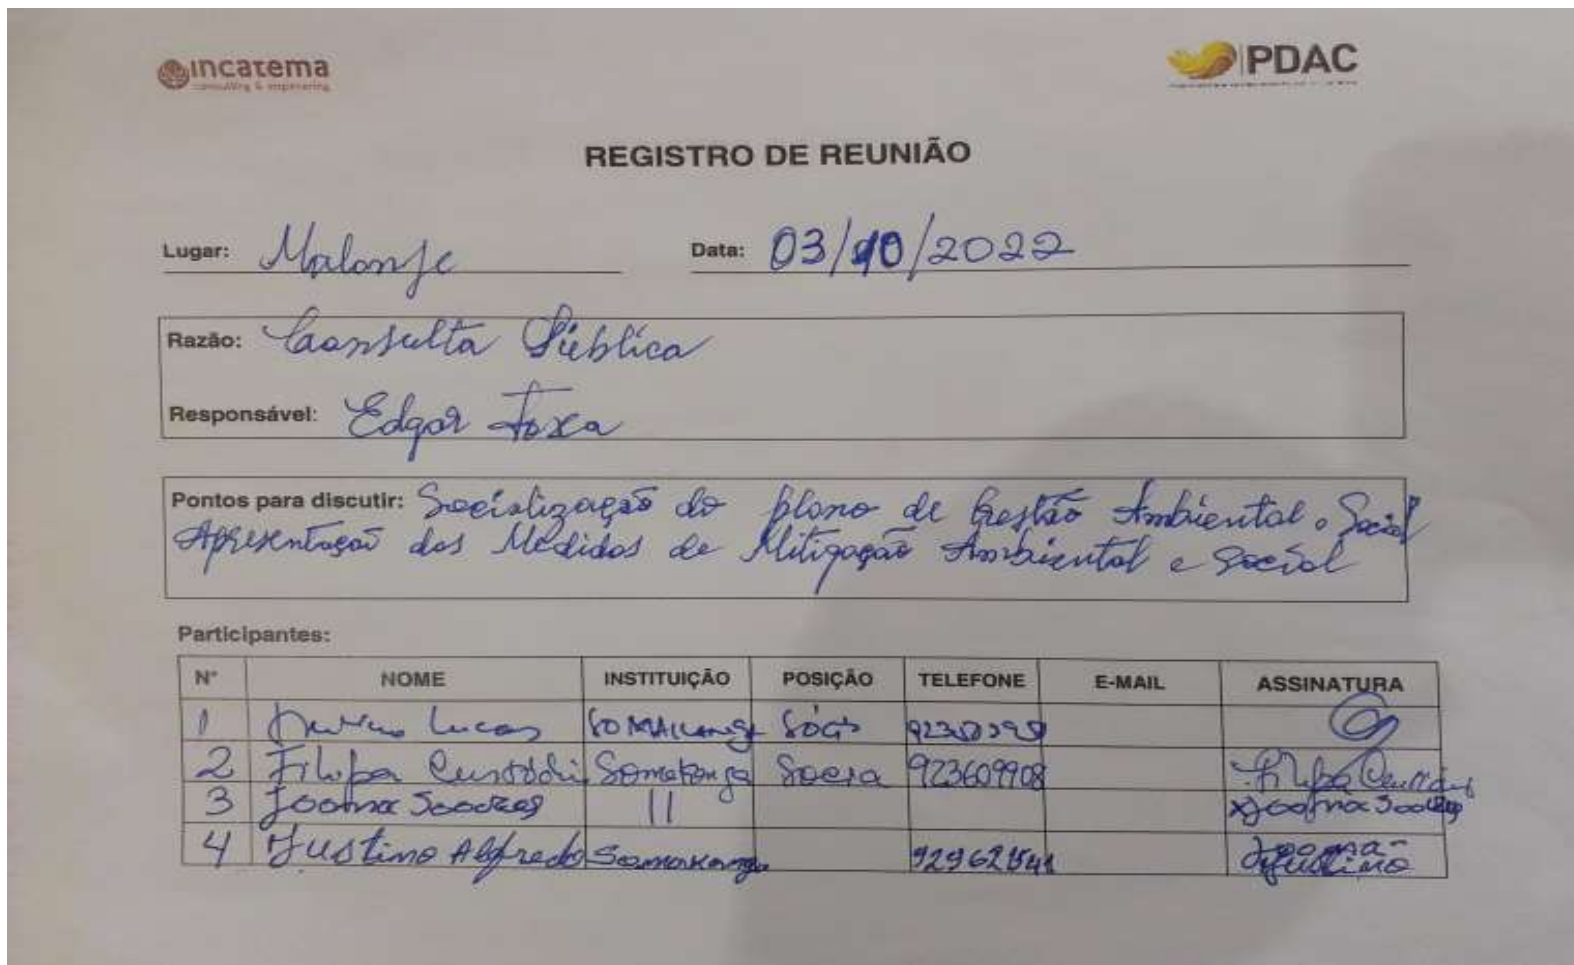 incatema
consulting & engineering
PDAC
REGISTRO DE REUNIÃO
Lugar: Malanje Data: 03/10/2022
Razão: Consulta Pública
Responsável: Edgar Foxa
Pontos para discutir: Socialização do plano de Gestão Ambiental e Social
Apresentação das Medidas de Mitigação Ambiental e Social
Participantes:
Nº NOME INSTITUIÇÃO POSIÇÃO TELEFONE E-MAIL ASSINATURA
1 Lucas
2 Filipa Custódi Somakanga Socia 923609908 Filipa
3 Joana Soares 11 Joana Soares
4 Justino Alfredo Somakanga 929621541 Justino